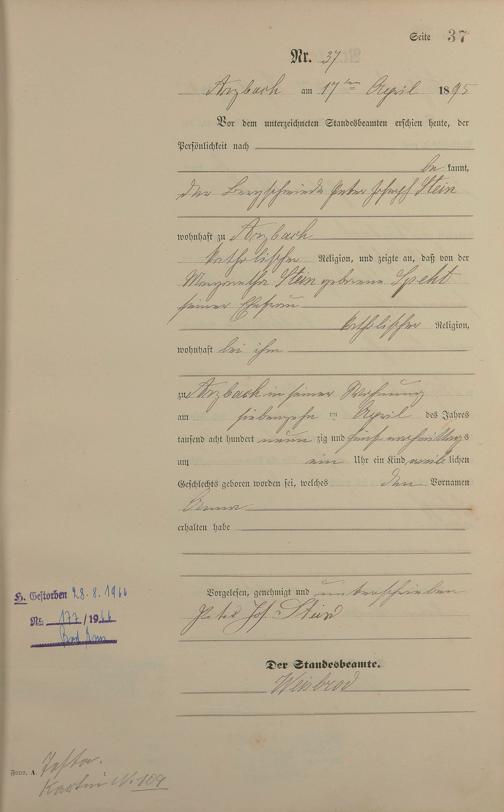 Seite 37
Nr. 37
Arzbach am 17ten April 1895
Vor dem unterzeichneten Standesbeamten erschien heute, der
Persönlichkeit nach
be kannt,
der Bergschmiede Peter Joseph Stein
wohnhaft zu Arzbach
katholischer Religion, und zeigte an, daß von der
Margaretha Stein geborene Specht
seiner Ehefrau
katholischer Religion,
wohnhaft bei ihm
zu Arzbach in seiner Wohnung
am siebenzehnten April des Jahres
tausend acht hundert neun zig und fünf nachmittags
um ein Uhr ein Kind weib lichen
Geschlechts geboren worden sei, welches den Vornamen
Anna
erhalten habe
Vorgelesen, genehmigt und unterschrieben
Peter Jos. Stein
Der Standesbeamte.
Weisbrod
H. Gestorben 28.8.1966
Nr. 177/1966
Bad Ems
Form. A.
109